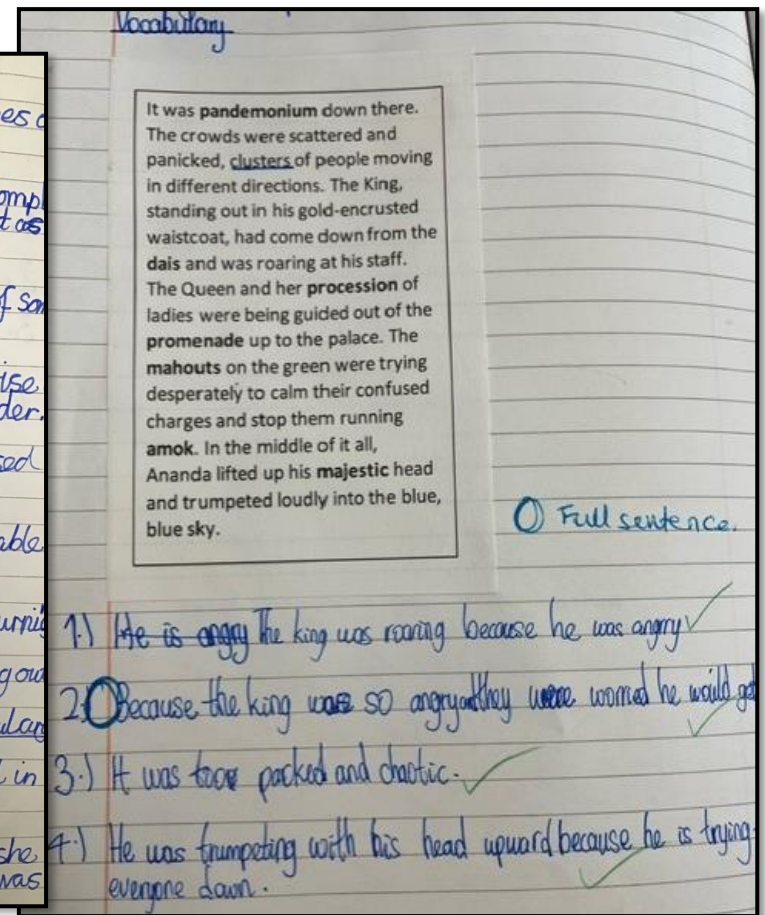 es
omp
t as
f som
ise
der.
sed
able
urni
g ow
ular
in
she
was
Vocabulary
It was pandemonium down there.
The crowds were scattered and
panicked, clusters of people moving
in different directions. The King,
standing out in his gold-encrusted
waistcoat, had come down from the
dais and was roaring at his staff.
The Queen and her procession of
ladies were being guided out of the
promenade up to the palace. The
mahouts on the green were trying
desperately to calm their confused
charges and stop them running
amok. In the middle of it all,
Ananda lifted up his majestic head
and trumpeted loudly into the blue,
blue sky.
Full sentence.
1.) He is angry The king was roaring because he was angry
2. Because the king was so angry they were worried he would
3.) It was packed and chaotic.
4.) He was trumpeting with his head upward because he is trying
everyone down.